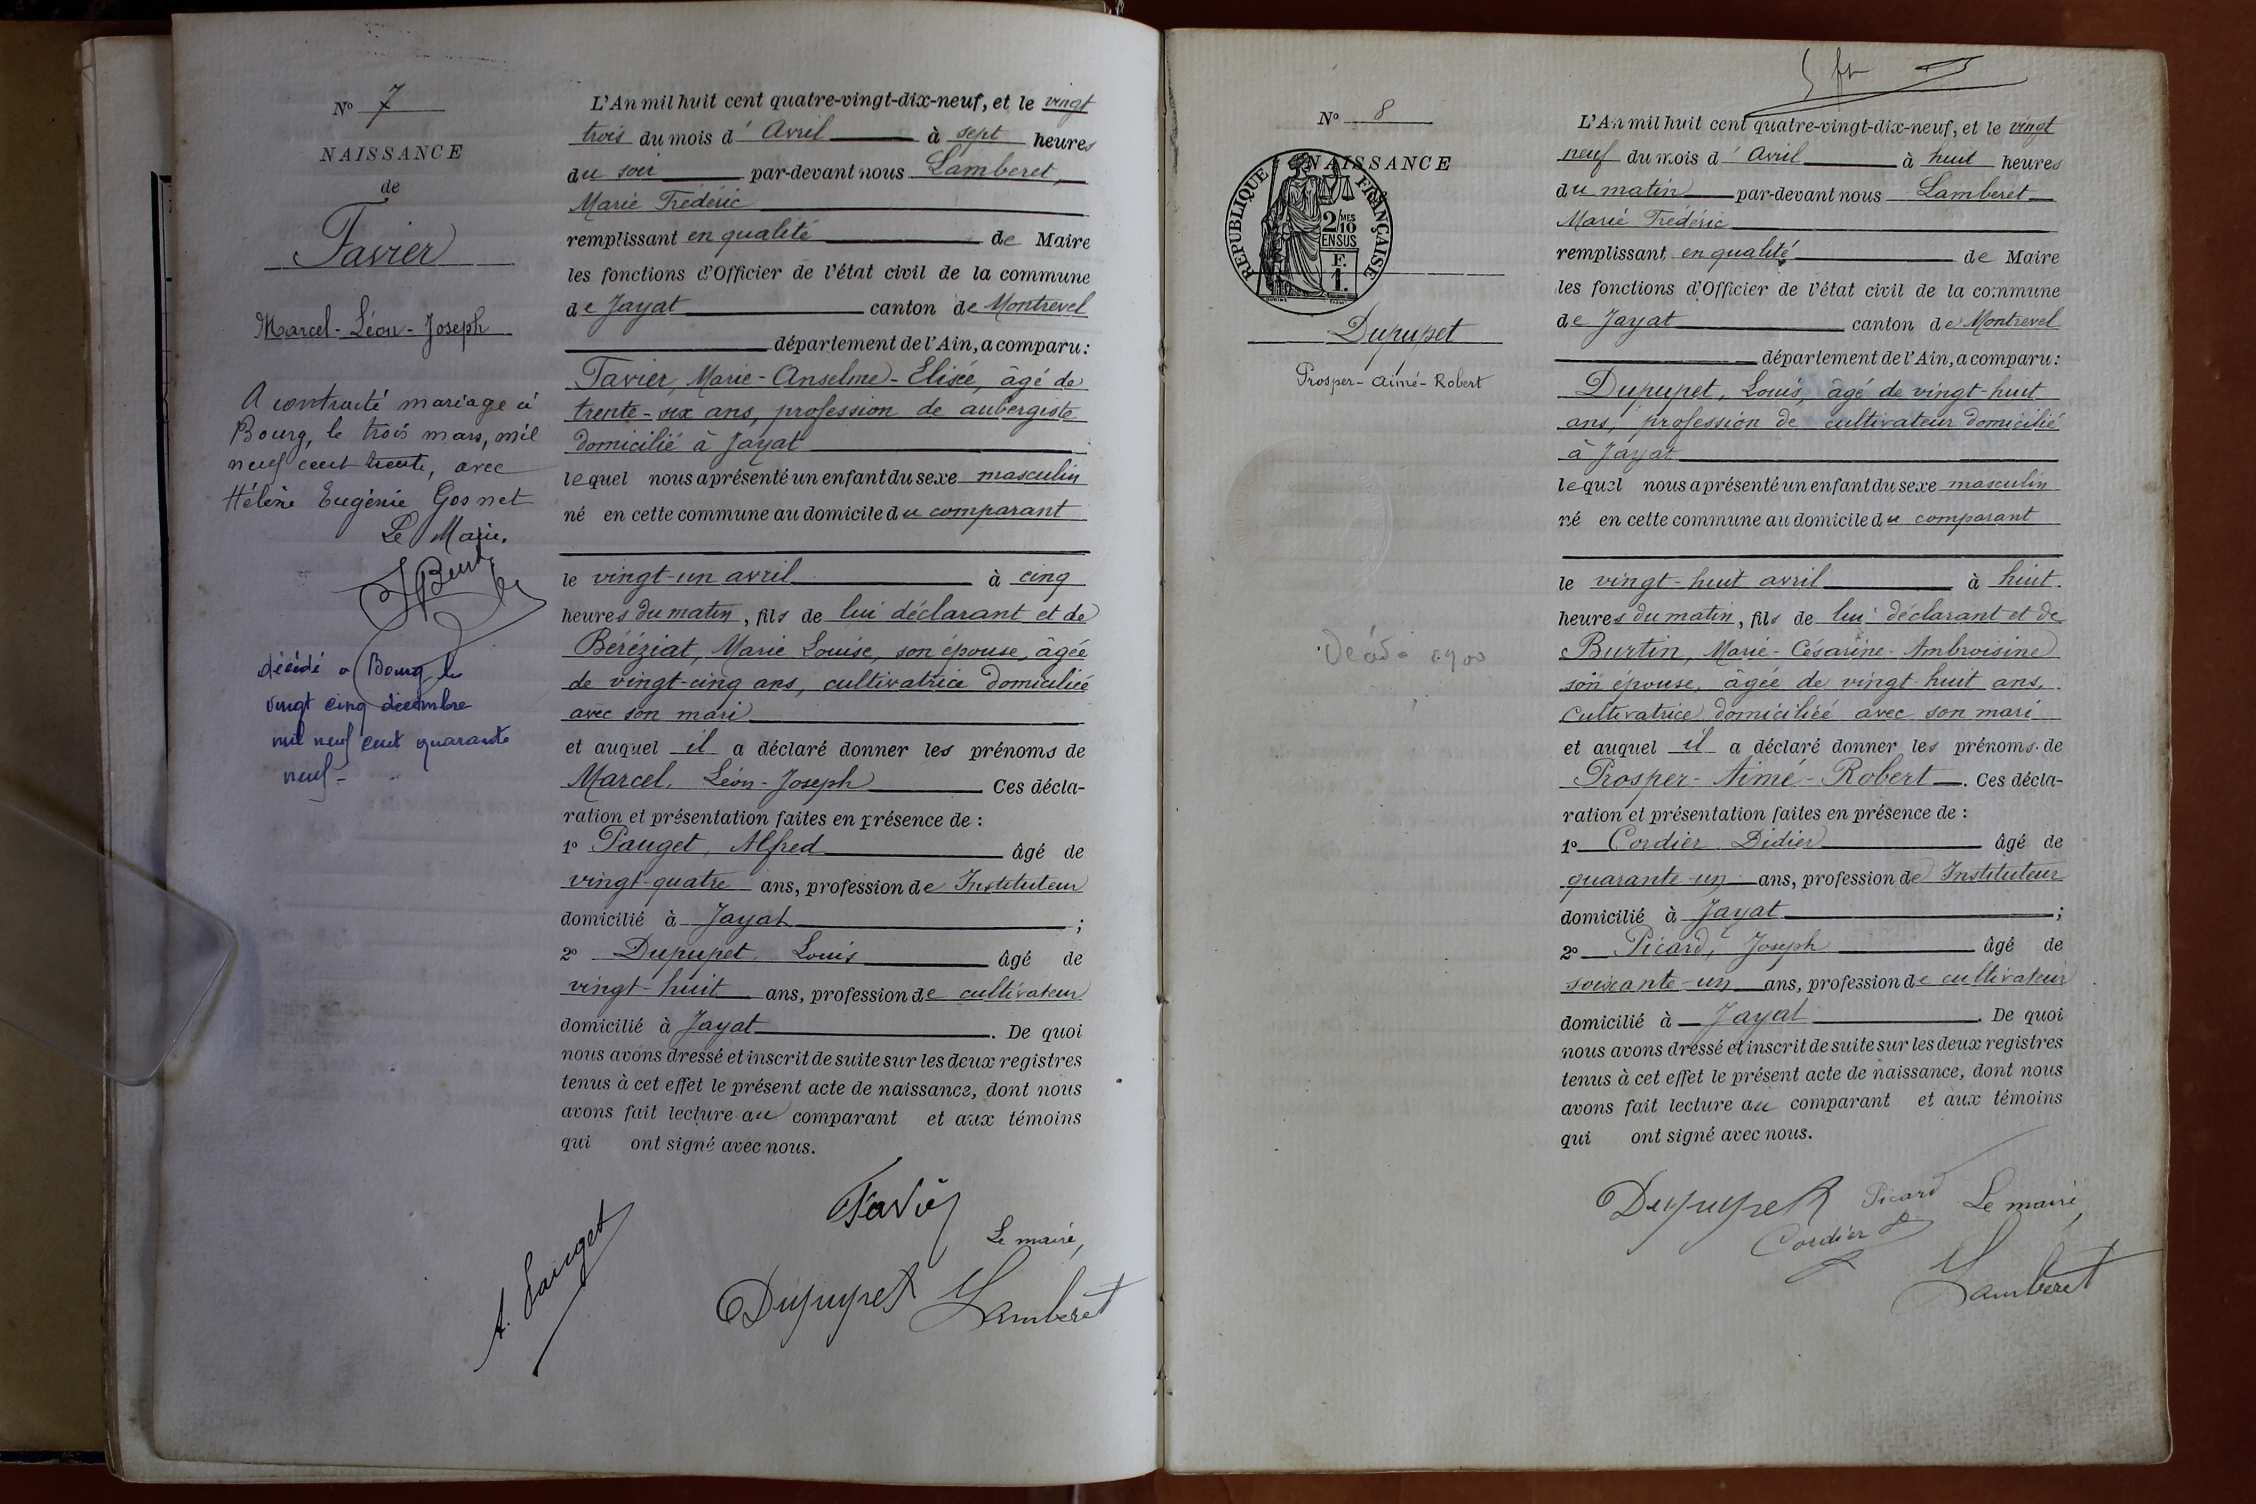 N° 7
NAISSANCE
de
Favier
Marcel-Léon-Joseph
A contracté mariage à
Bourg, le trois mars, mil
neuf cent trente, avec
Hélène Eugénie Gosnet
Le Maire.
décédé a Bourg le
vingt cinq décembre
mil neuf cent quarante
neuf-
L'An mil huit cent quatre-vingt-dix-neuf, et le vingt
trois du mois d'Avril à sept heures
du soir par-devant nous Lamberet,
Marie Frédéric
remplissant en qualité de Maire
les fonctions d'Officier de l'état civil de la commune
de Jayat canton de Montrevel
département de l'Ain, a comparu:
Favier, Marie-Anselme-Elisée, âgé de
trente-six ans, profession de aubergiste
domicilié à Jayat
lequel nous a présenté un enfant du sexe masculin
né en cette commune au domicile du comparant
le vingt-un avril à cinq
heures du matin, fils de lui déclarant et de
Béréziat, Marie Louise, son épouse, âgée
de vingt-cinq ans, cultivatrice domiciliée
avec son mari
et auquel il a déclaré donner les prénoms de
Marcel, Léon-Joseph Ces décla-
ration et présentation faites en présence de :
1° Pauget, Alfred âgé de
vingt-quatre ans, profession de Instituteur
domicilié à Jayat ;
2° Dupupet, Louis âgé de
vingt-huit ans, profession de cultivateur
domicilié à Jayat. De quoi
nous avons dressé et inscrit de suite sur les deux registres
tenus à cet effet le présent acte de naissance, dont nous
avons fait lecture au comparant et aux témoins
qui ont signé avec nous.
Favier
A. Pauget
Le maire,
Dupupet Lamberet
N° 8
NAISSANCE
RÉPUBLIQUE FRANÇAISE
2/10 MES
EN SUS
F.
1.
Dupupet
Prosper-Aimé-Robert
Décédé 1900
L'An mil huit cent quatre-vingt-dix-neuf, et le vingt
neuf du mois d'Avril à huit heures
du matin par-devant nous Lamberet
Marie Frédéric
remplissant en qualité de Maire
les fonctions d'Officier de l'état civil de la commune
de Jayat canton de Montrevel
département de l'Ain, a comparu:
Dupupet, Louis, âgé de vingt-huit
ans, profession de cultivateur domicilié
à Jayat
lequel nous a présenté un enfant du sexe masculin
né en cette commune au domicile du comparant
le vingt-huit avril à huit
heures du matin, fils de lui déclarant et de
Burtin, Marie-Césarine-Ambroisine
son épouse, âgée de vingt-huit ans,
cultivatrice domiciliée avec son mari
et auquel il a déclaré donner les prénoms de
Prosper-Aimé-Robert. Ces décla-
ration et présentation faites en présence de :
1° Cordier Didier âgé de
quarante-un ans, profession de Instituteur
domicilié à Jayat ;
2° Picard, Joseph âgé de
soixante-un ans, profession de cultivateur
domicilié à Jayat. De quoi
nous avons dressé et inscrit de suite sur les deux registres
tenus à cet effet le présent acte de naissance, dont nous
avons fait lecture au comparant et aux témoins
qui ont signé avec nous.
Dupupet Picard Le maire,
Cordier
Lamberet